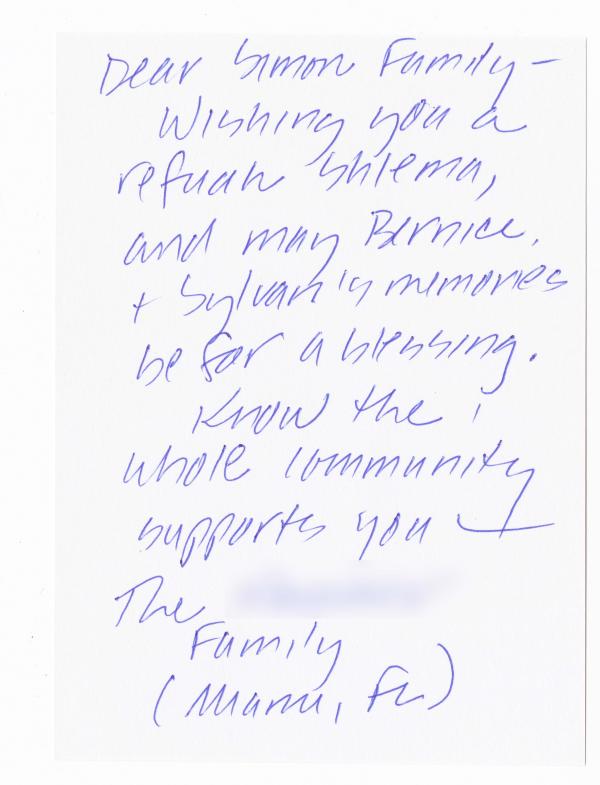 Dear Simon Family -
Wishing you a
refuah shlema,
and may Bernice,
+ Sylvan's memories
be for a blessing.
Know the
whole community
supports you -
The
Family
(Miami, FL)